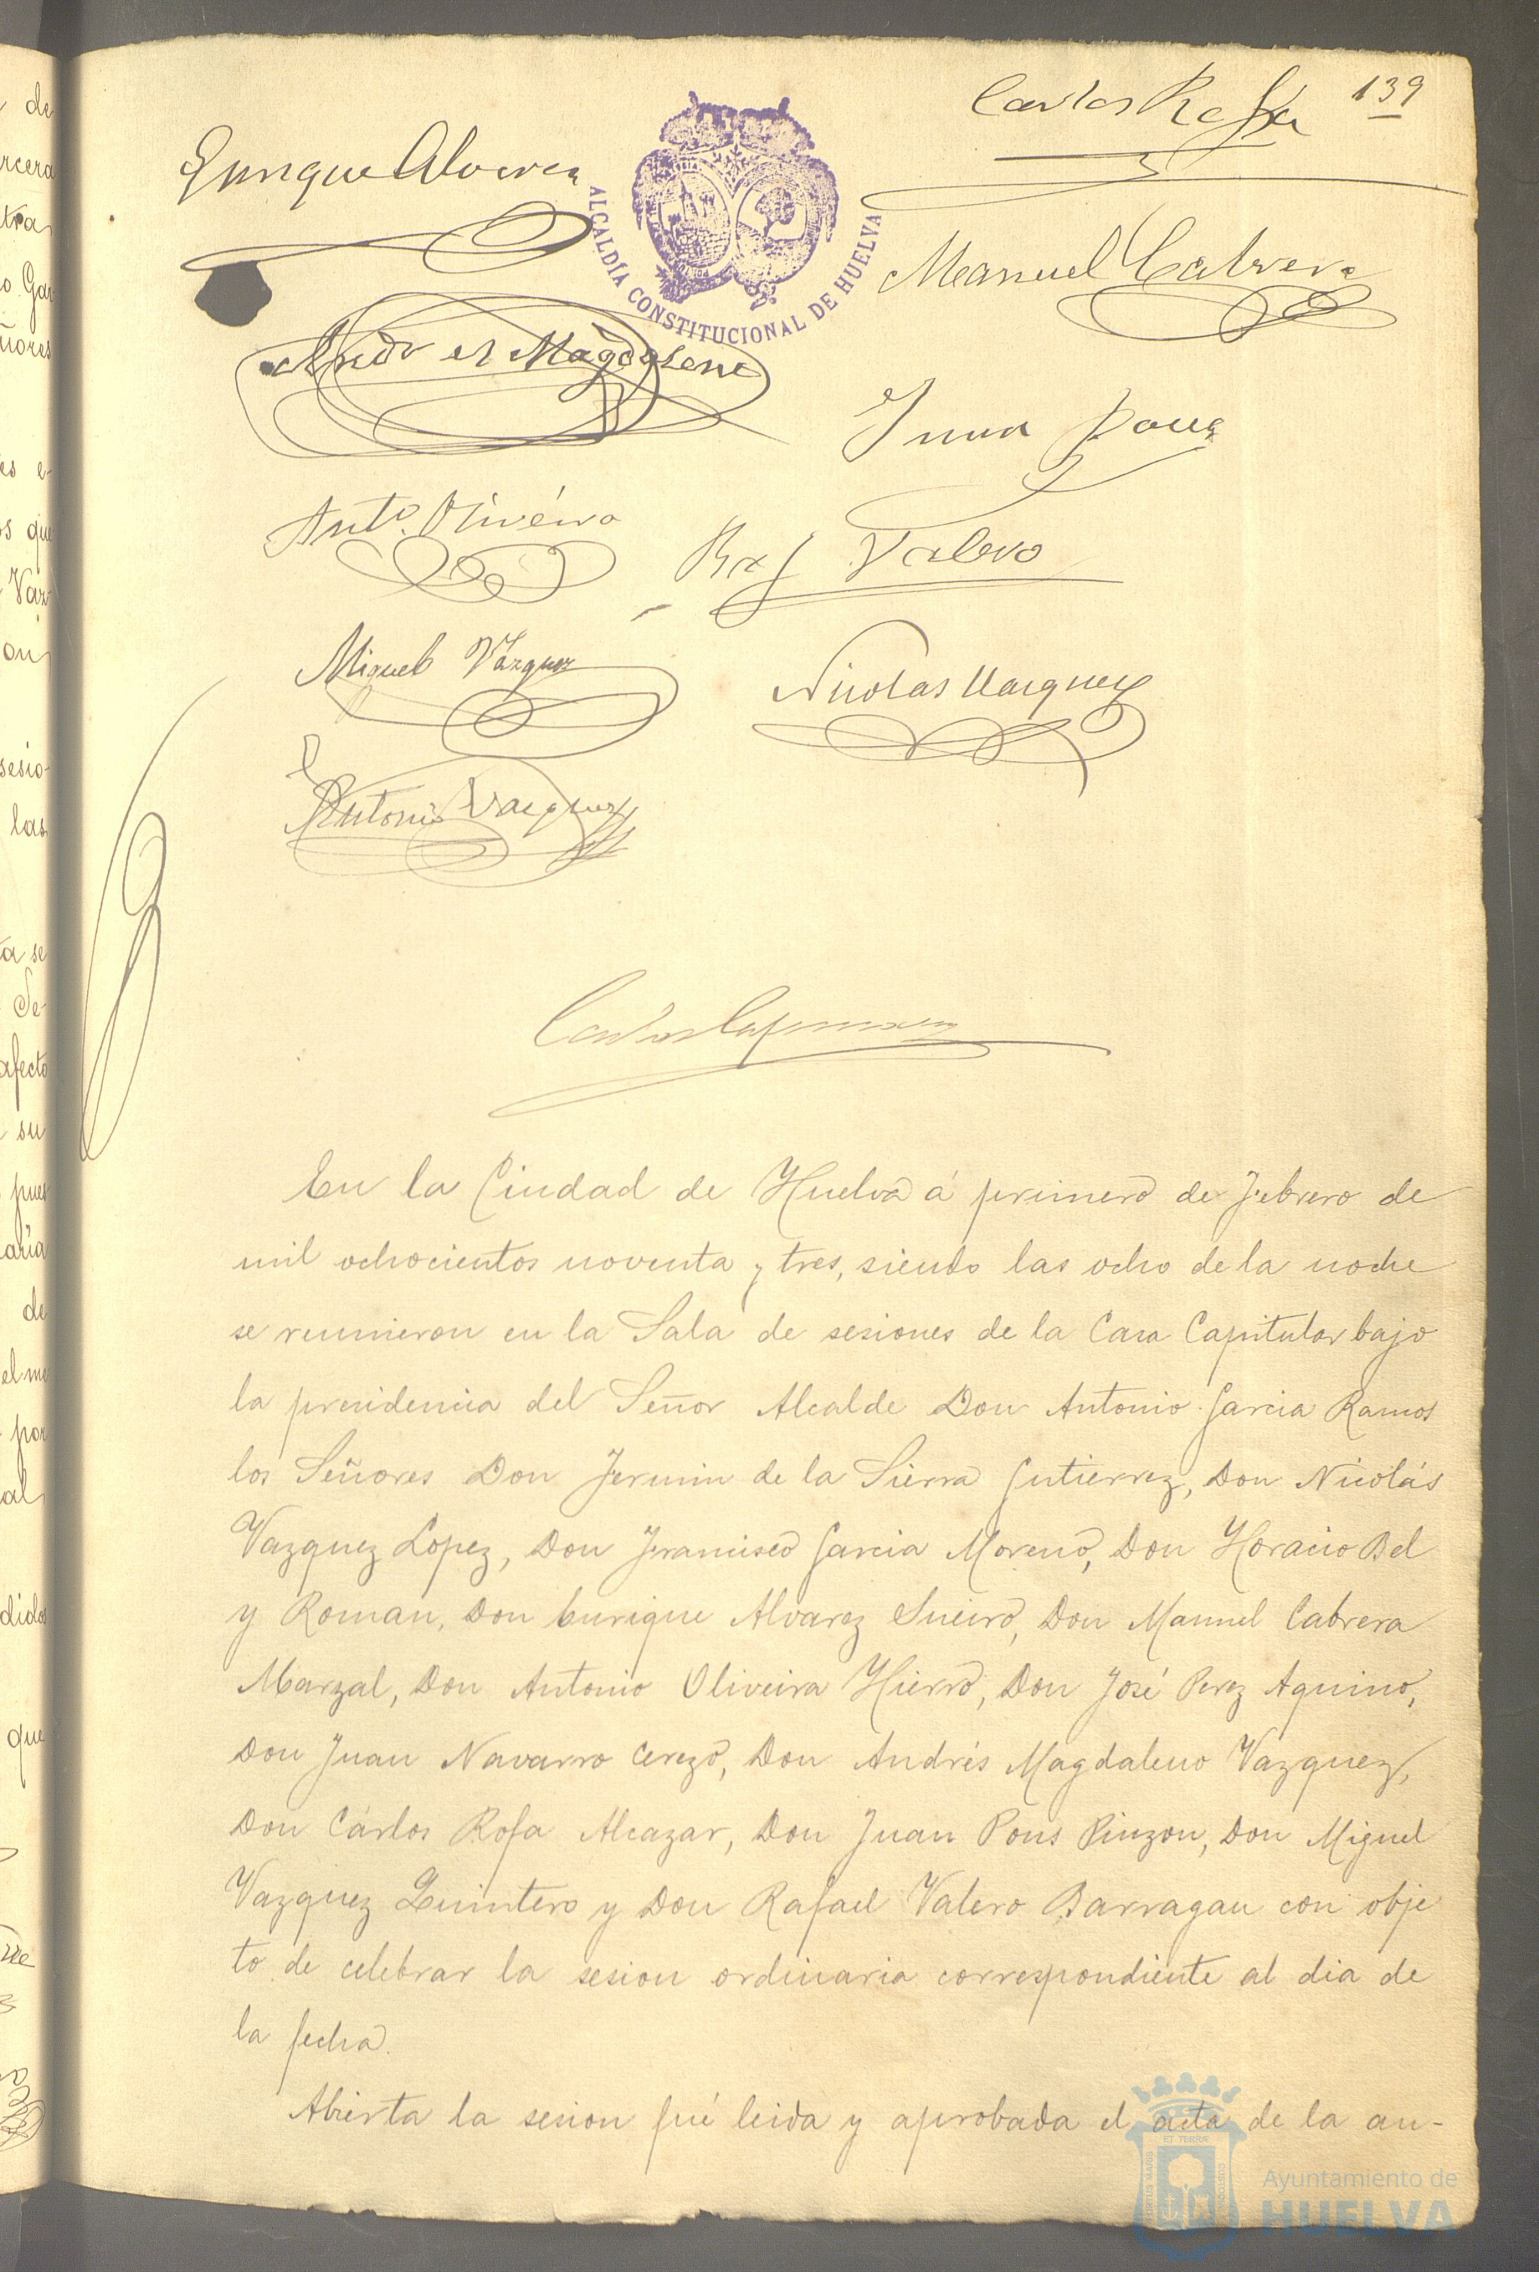 139
Carlos Rofa
Enrique Alvarez
ALCALDÍA CONSTITUCIONAL DE HUELVA
Manuel Cabrera
Andrés Magdaleno
Juan Pons
Antº. Oliveira
Raf Valero
Miguel Vazquez
Nicolas Vazquez
Antonio Vazquez
En la Ciudad de Huelva á primero de Febrero de
mil ochocientos noventa y tres, siendo las ocho de la noche
se reunieron en la Sala de sesiones de la Casa Capitular bajo
la presidencia del Señor Alcalde Don Antonio Garcia Ramos
los Señores Don Fermin de la Sierra Gutierrez, Don Nicolás
Vazquez Lopez, Don Francisco Garcia Moreno, Don Horacio Bel
y Roman, Don Enrique Alvarez Sueiro, Don Manuel Cabrera
Marzal, Don Antonio Oliveira Hierro, Don José Perez Aquino,
Don Juan Navarro Cerezo, Don Andrés Magdaleno Vazquez,
Don Cárlos Rofa Alcazar, Don Juan Pons Pinzon, Don Miguel
Vazquez Quintero y Don Rafael Valero Barragan con obje
to de celebrar la sesion ordinaria correspondiente al dia de
la fecha.
Abierta la sesion fué leida y aprobada el acta de la an-
Ayuntamiento de
HUELVA